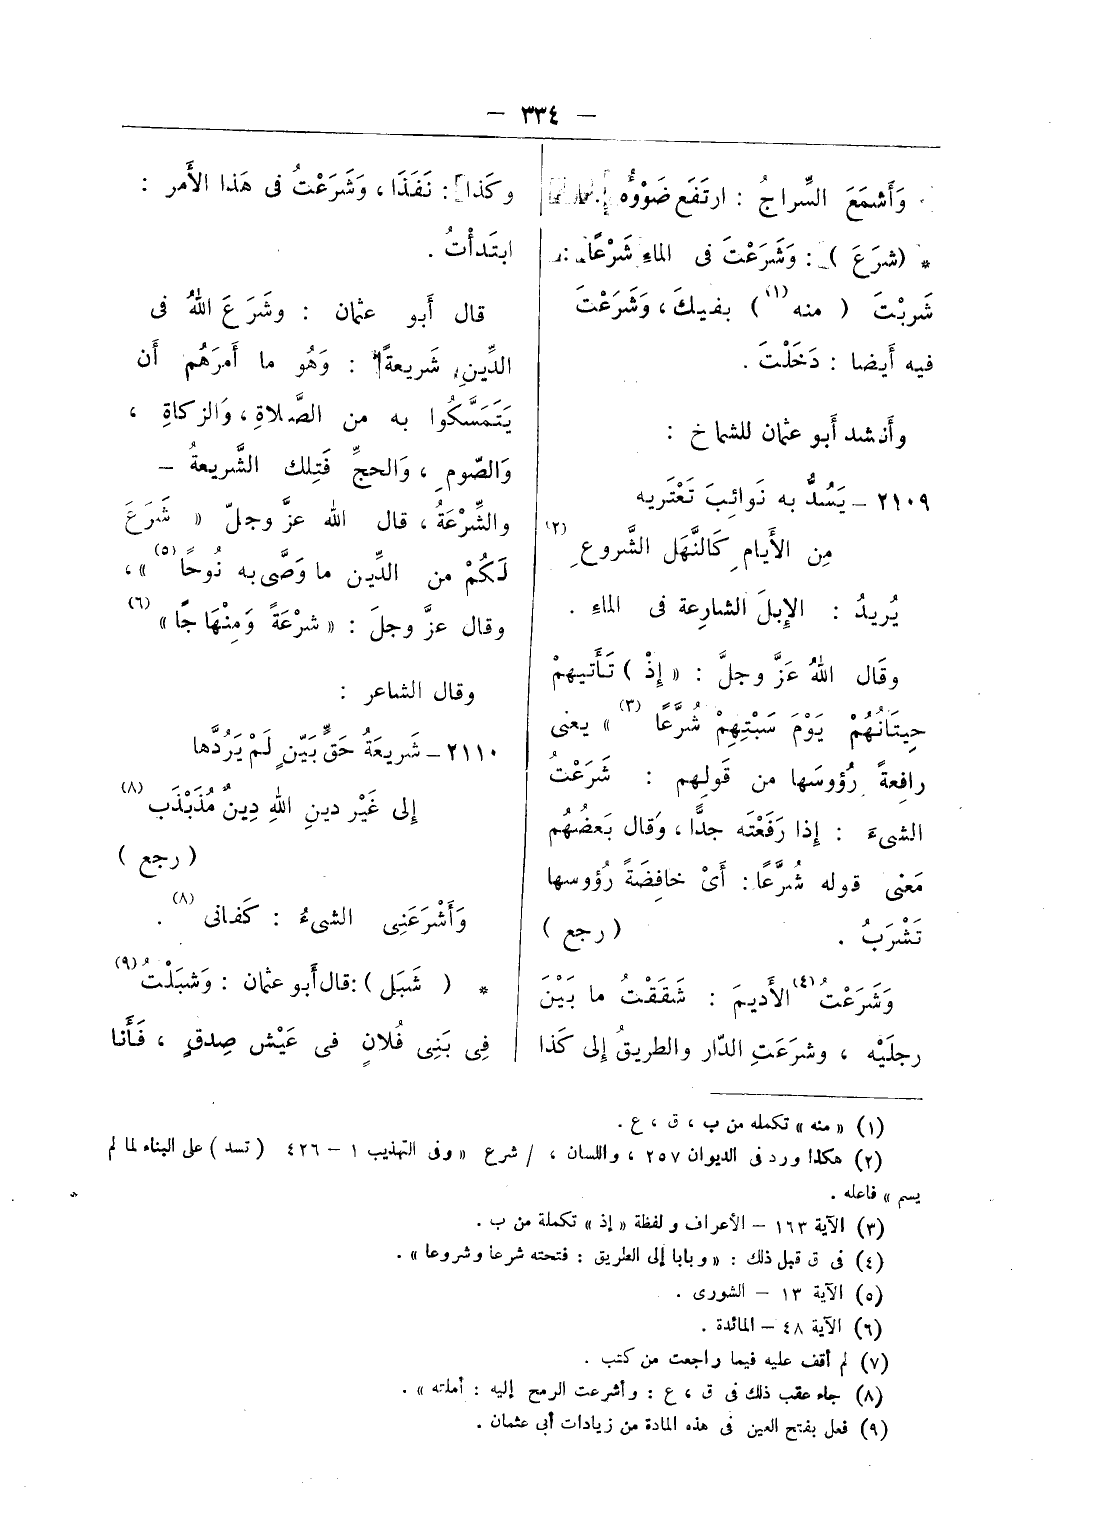 – ٣٣٤ –
وَأَشمَعَ السِّراجُ : ارتَفَع ضَوْوُه
* (شرَعَ) : وَشَرَعْتَ فى الماءِ شَرْعًا :
شَربْتَ ( منه (١) ) بفيكَ ، وَشَرَعْتَ
فيه أَيضا : دَخَلْتَ .
وأَنشد أَبو عثمان للشماخ :
٢١٠٩ – يَسُدُّ به نَوائِبَ تَعْتَريه
مِن الأَيامِ كَالنَّهَل الشَّروعِ (٢)
يُريدُ : الإِبلَ الشارِعة فى الماءِ .
وقَال اللهُ عَزَّ وجلَّ : « إِذْ ) تَأَتيهمْ
حِيتَانُهُمْ يَوْمَ سَبْتِهِمْ شُرَّعًا (٣) » يعنى
رافِعةً رُؤوسَها من قَولِهم : شَرَعْتُ
الشىءَ : إِذا رَفَعْتَه جدًّا ، وَقال بَعضُهُم
مَعْنى قوله شُرَّعًا : أَىْ خافِضَةً رُؤوسها
تَشْرَبُ . ( رجع )
وَشَرَعْتُ (٤) الأَديمَ : شَقَقْتُ ما بَيْنَ
رجلَيْه ، وشرَعَتِ الدّار والطريقُ إِلى كَذا
وكَذا : نَفَذَا ، وَشَرَعْتُ فى هَذا الأَمر :
ابتَدأْتُ .
قال أَبو عثمان : وشَرَعَ اللهُ فى
الدِّينِ شَريعةً : وَهُو ما أَمرَهُم أَن
يَتَمَسَّكُوا به من الصَّلاةِ ، وَالزكاةِ ،
وَالصّومِ ، وَالحجِّ فَتِلك الشَّريعةُ –
والشِّرْعَةُ ، قال الله عزَّ وجلّ « شَرَعَ
لَكُمْ من الدِّين ما وَصَّى به نُوحًا (٥) » ،
وقال عزَّ وجلَ : « شرْعَةً وَمِنْهَاجًا » (٦)
وقال الشاعر :
٢١١٠ – شَريعَةُ حَقٍّ بَيّنٍ لَمْ يَرُدَّها
إِلى غَيْر دينِ اللهِ دِينٌ مُذَبْذَب (٨)
( رجع )
وَأَشْرَعَنِى الشىءُ : كَفانى (٨) .
* ( شَبَل ) : قال أَبو عثمان : وَشبَلْتُ (٩)
فِى بَنِى فُلانٍ فى عَيْش صِدقٍ ، فَأَنا
(١) « منه » تكمله من ب ، ق ، ع .
(٢) هكذا ورد فى الديوان ٢٥٧ ، واللسان ، / شرع « وفى التهذيب ١ – ٤٢٦ ( تسد ) على البناء لما لم
يسم » فاعله .
(٣) الآية ١٦٣ – الأعراف ولفظة « إذ » تكملة من ب .
(٤) فى ق قبل ذلك : « وبابا إلى الطريق : فتحته شرعا وشروعا » .
(٥) الآية ١٣ – الشورى .
(٦) الآية ٤٨ – المائدة .
(٧) لم أقف عليه فيما راجعت من كتب .
(٨) جاء عقب ذلك فى ق ، ع : وأشرعت الرمح إليه : أملته » .
(٩) فعل بفتح العين فى هذه المادة من زيادات أبى عثمان .